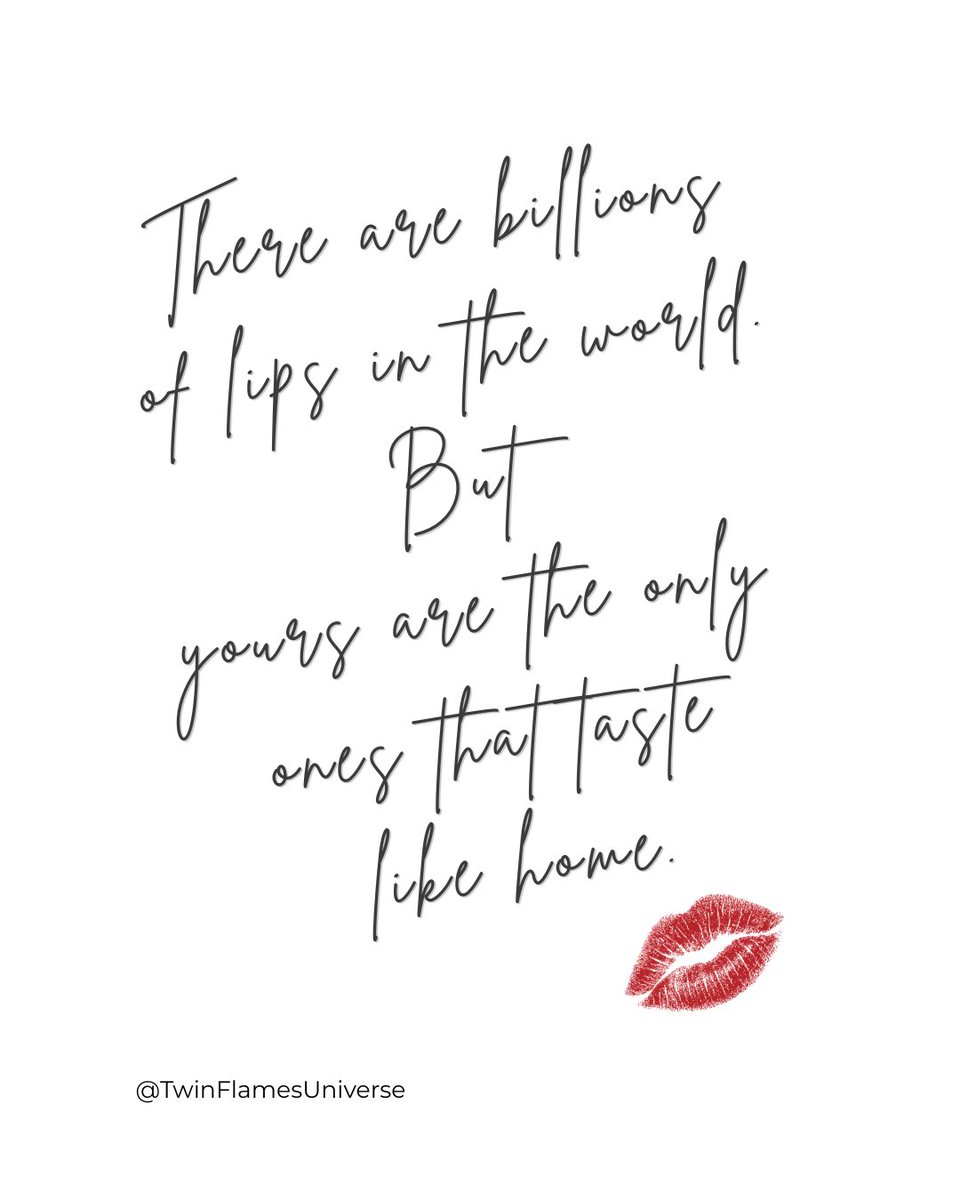 There are billions
of lips in the world.
But
yours are the only
ones that taste
like home.
@TwinFlamesUniverse